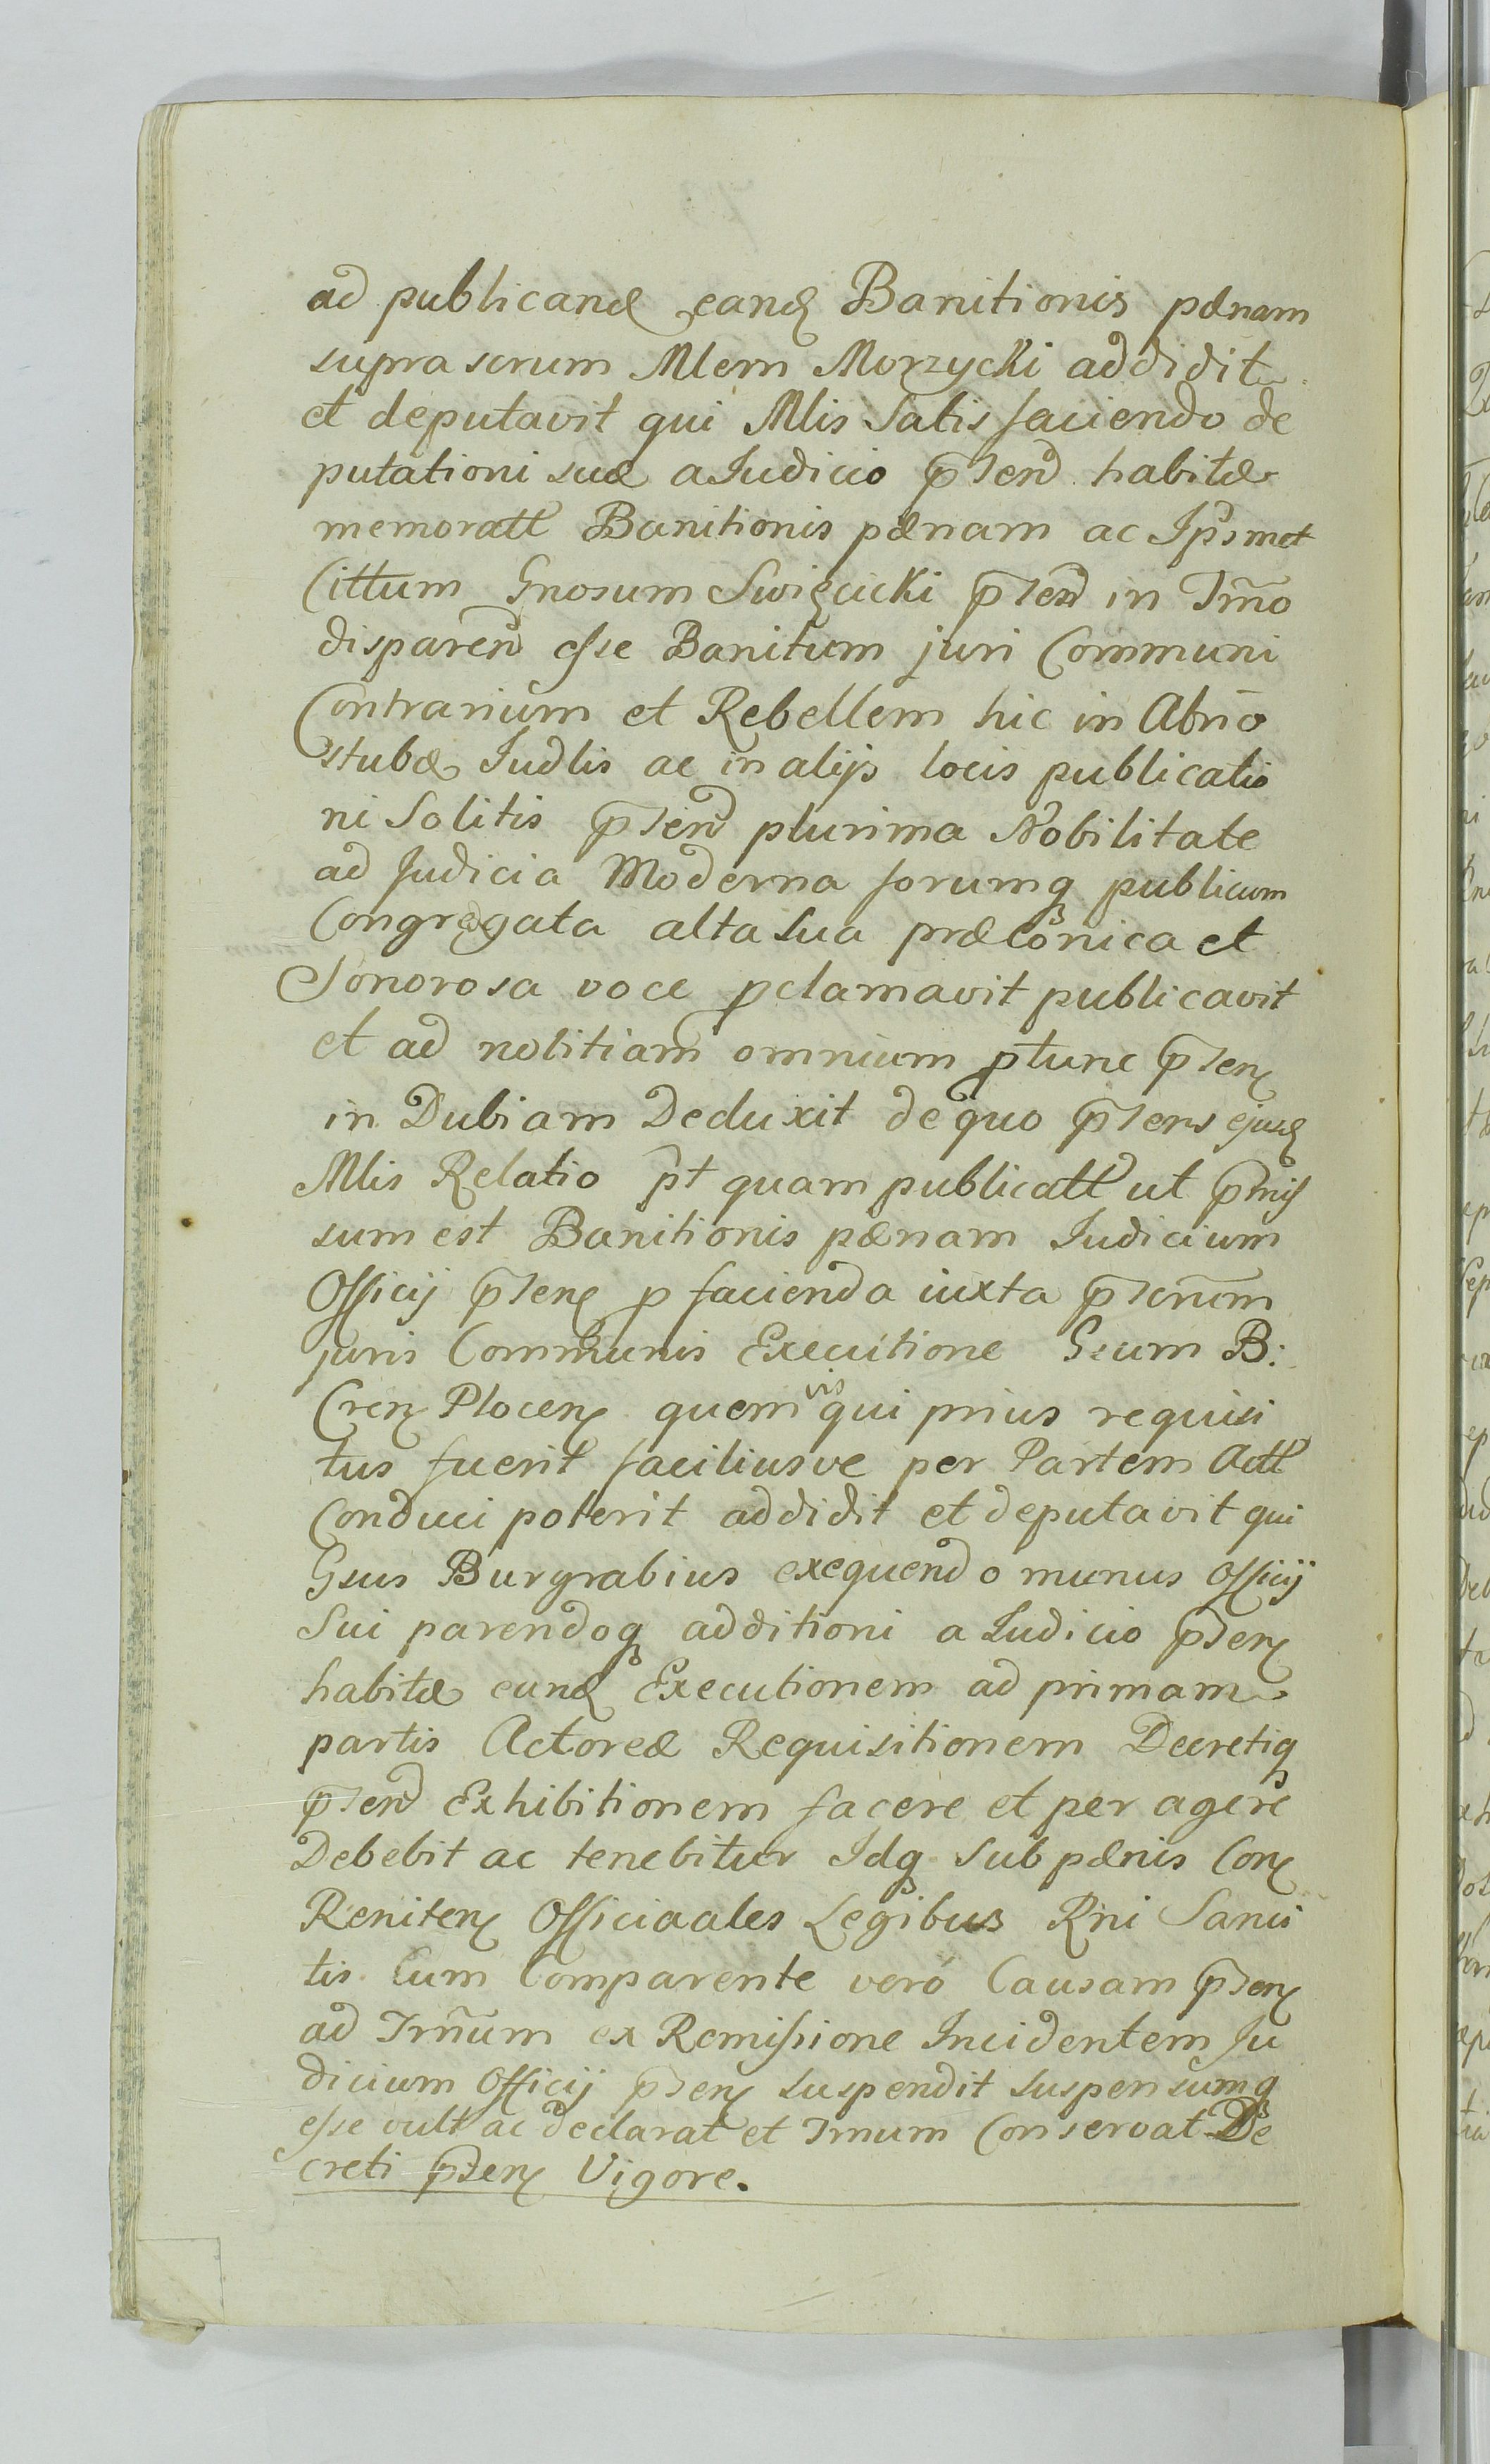 ad publicand eand Banitionis pænam
supra scrum Mlem Morzycki addidit
et deputavit qui Mlis Satis faciendo de
putationi suæ a Iudicio p̄send habitæ
memoratt Banitionis pænam ac Ipsmet
Cittum Gnosum Swięcicki p̄send in Tm̃o
disparend esse Banitum juri Communi
Contrarium et Rebellem hic in Atrio
stubæ Iudlis ac in alijs locis publicatio
ni Solitis p̄send plurima Nobilitate
ad Judicia Moderna forumq publicum
Congregata alta sua præconica et
Sonorosa voce pclamavit publicavit
et ad notitiam omnium ptunc p̄sen
in Dubiam Deduxit de quo p̄sens ejusd
Mlis Relatio pt quam publicatt ut p̄mis
sum est Banitionis pænam Iudicium
Officij p̄sen p facienda iuxta p̄scrium
juris Communis Executione Gsum B:
Cren Plocen quemvis qui prius requisi
tus fuerit faciliusve per Partem Actt
Conduci poterit addidit et deputavit qui
Gsus Burgrabius exequendo munus Officij
Sui parendoq additioni a Iudicio p̄sen
habitæ eand Executionem ad primam
partis Actoreæ Requisitionem Decretiq
p̄send Exhibitionem facere et per agere
Debebit ac tenebitur Idq sub pænis Con
Reniten Officiaales Legibus Rni Sanci
tis. Cum Comparente vero Causam p̄sen
ad Tm̃um ex Remissione Incidentem Ju
dicium Officij p̄sen suspendit suspensumq
esse vult ac declarat et Tmum Conservat De
creti p̄sen Vigore.